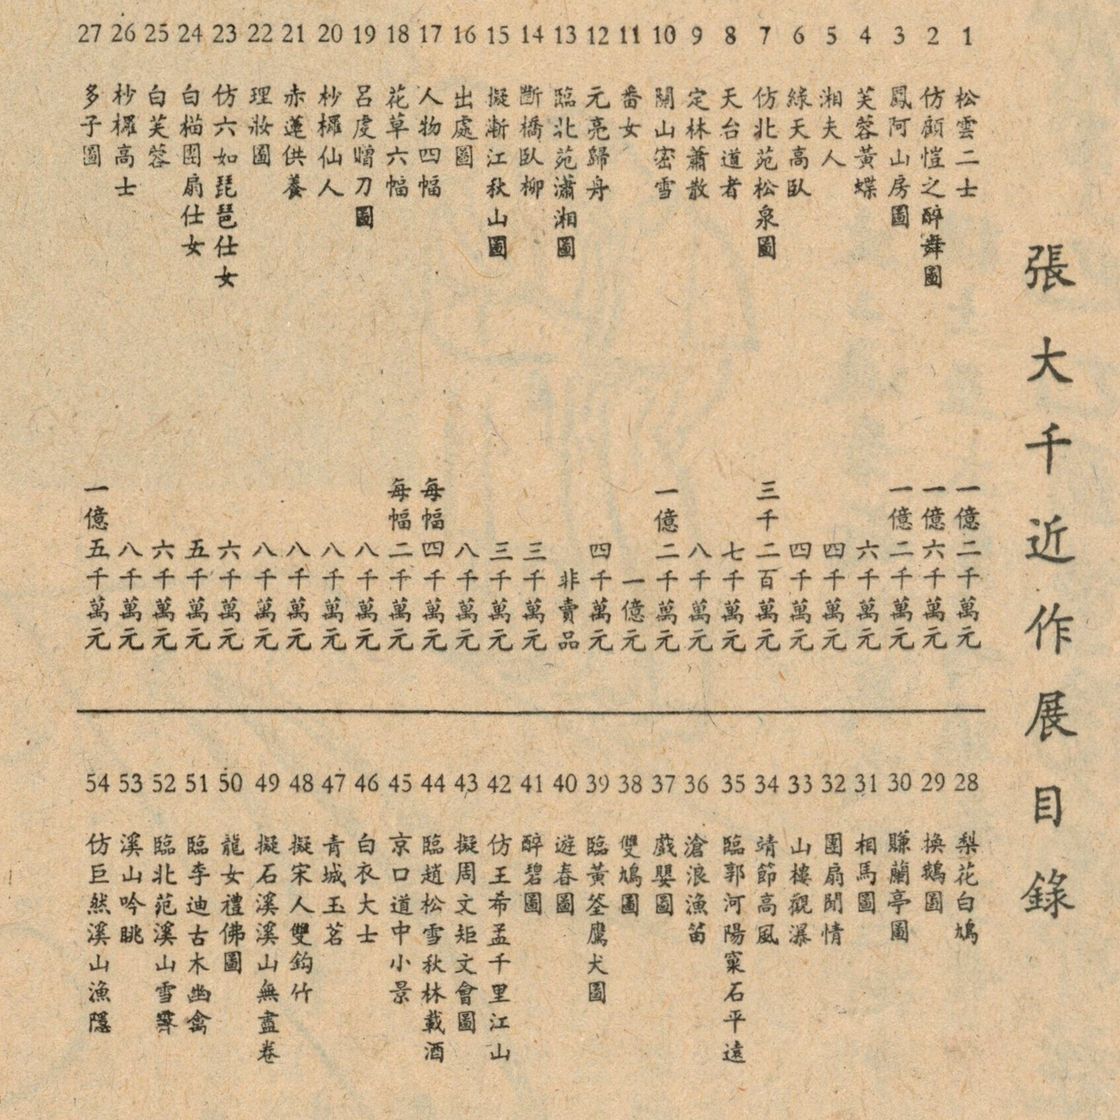 張大千近作展目錄
1 松雲二士 一億二千萬元
2 仿顧愷之醉舞圖 一億六千萬元
3 鳳阿山房圖 一億二千萬元
4 芙蓉黃蝶 六千萬元
5 湘夫人 四千萬元
6 綠天高臥 四千萬元
7 仿北苑松泉圖 三千二百萬元
8 天台道者 七千萬元
9 定林蕭散 八千萬元
10 關山密雪 一億二千萬元
11 番女 一億元
12 元亮歸舟 四千萬元
13 臨北苑瀟湘圖 非賣品
14 斷橋臥柳 三千萬元
15 擬漸江秋山圖 三千萬元
16 出處圖 八千萬元
17 人物四幅 每幅四千萬元
18 花草六幅 每幅二千萬元
19 呂虔贈刀圖 八千萬元
20 杪欏仙人 八千萬元
21 赤蓮供養 八千萬元
22 理妝圖 八千萬元
23 仿六如琵琶仕女 六千萬元
24 白描團扇仕女 五千萬元
25 白芙蓉 六千萬元
26 杪欏高士 八千萬元
27 多子圖 一億五千萬元
28 梨花白鳩
29 換鵝圖
30 賺蘭亭圖
31 相馬圖
32 團扇閒情
33 山樓觀瀑
34 靖節高風
35 臨郭河陽窠石平遠
36 滄浪漁笛
37 戲嬰圖
38 雙鳩圖
39 臨黃筌鷹犬圖
40 遊春圖
41 醉碧圖
42 仿王希孟千里江山
43 擬周文矩文會圖
44 臨趙松雪秋林載酒
45 京口道中小景
46 白衣大士
47 青城玉茗
48 擬宋人雙鈎竹
49 擬石溪溪山無盡卷
50 龍女禮佛圖
51 臨李迪古木幽禽
52 臨北苑溪山雪霽
53 溪山吟眺
54 仿巨然溪山漁隱